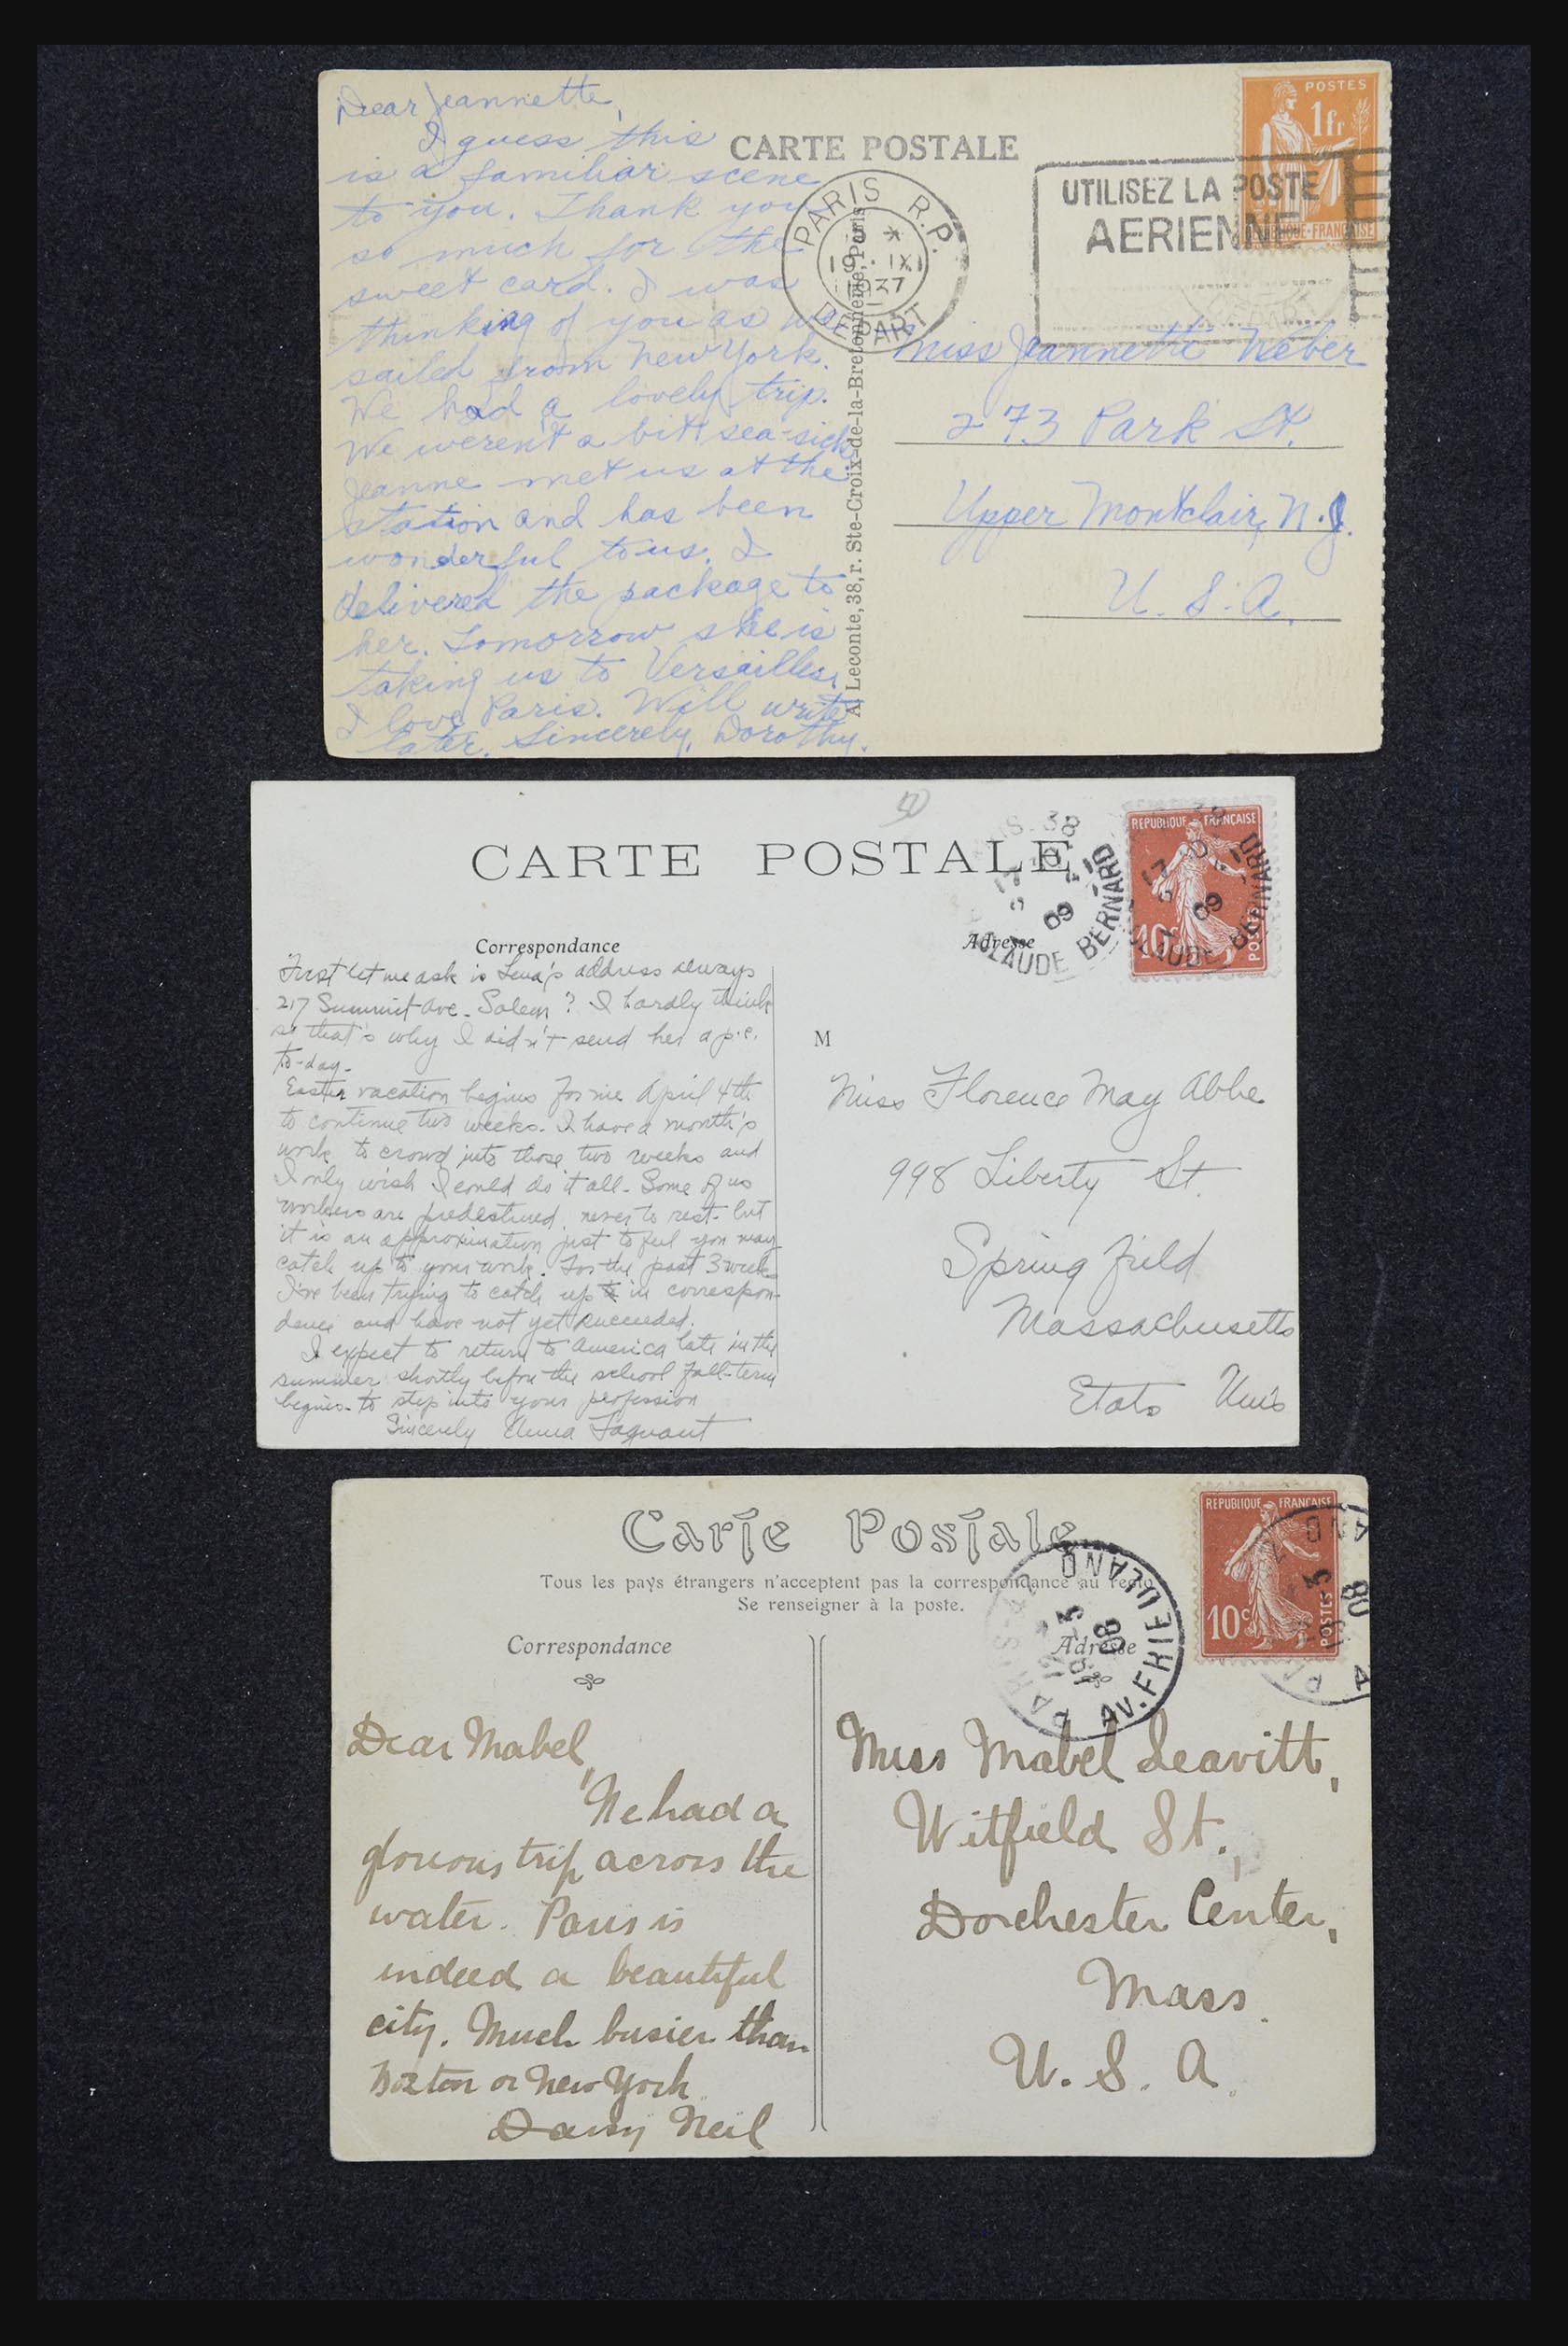 Dear Jeannette,
I guess this
is a familiar scene
to you. Thank you
so much for the
sweet card. I was
thinking of you as we
sailed from New York.
We had a lovely trip.
We weren't a bit sea-sick.
Jeanne met us at the
station and has been
wonderful to us. I
delivered the package to
her. Tomorrow she is
taking us to Versailles.
I love Paris. Will write
later. Sincerely, Dorothy.
CARTE POSTALE
PARIS R.P.
19 · IX
1937
DEPART
UTILISEZ LA POSTE
AERIENNE
POSTES
1fr
A. Leconte, 38, r. Ste-Croix-de-la-Bretonnerie, Paris
Miss Jeannette
273 Park St.
Upper Montclair, N.J.
U. S. A.
CARTE POSTALE
REPUBLIQUE FRANÇAISE
10c
POSTES
38
17
09
CLAUDE BERNARD
Correspondance
Adresse
First let me ask is Lena's address always
217 Summit Ave. Salem? I hardly think
so that's why I didn't send her a p.c.
to-day.
Easter vacation begins for me April 4th
to continue two weeks. I have a month's
work to crowd into those two weeks and
I only wish I could do it all. Some of us
workers are predestined never to rest - but
it is an approximation just to feel you may
catch up to your work. For the past 3 weeks
I've been trying to catch up in correspon-
dence and have not yet succeeded.
I expect to return to America late in the
summer shortly before the school fall-term
begins - to step into your profession
Sincerely Anna
M
Miss Florence May Abbe
998 Liberty St.
Spring field
Massachusetts
Etats Unis
Carte Postale
Tous les pays étrangers n'acceptent pas la correspondance au recto
Se renseigner à la poste.
REPUBLIQUE FRANÇAISE
10c
POSTES
PARIS
AV. FRIEDLAND
08
Correspondance
Adresse
Dear Mabel,
We had a
glorious trip across the
water. Paris is
indeed a beautiful
city. Much busier than
Boston or New York
Daisy Neil
Miss Mabel Leavitt,
Witfield St.,
Dorchester Center,
Mass.
U. S. A.